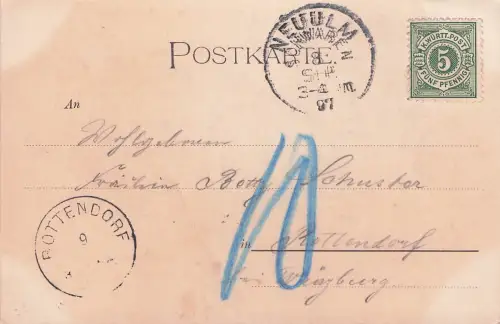 POSTKARTE.
NEUULM
8
97
K. WÜRTT. POST
5
FÜNF PFENNIG
An
Wohlgeboren
Fräulein Betty Schuster
in Rottendorf
bei Würzburg
ROTTENDORF
9
10